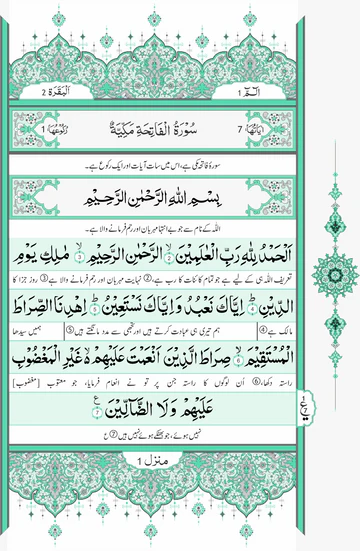 الٓمّٓ 1
اَلْبَقَرَة 2
اٰیَاتُهَا 7
سُوْرَةُ الْفَاتِحَةِ مَكِّيَّةٌ
رُكُوْعُهَا 1
سورۃ فاتحہ مکی ہے، اس میں سات آیات اور ایک رکوع ہے۔
بِسْمِ اللّٰهِ الرَّحْمٰنِ الرَّحِيْمِ
اللہ کے نام سے جو بے انتہا مہربان اور رحم فرمانے والا ہے۔
اَلْحَمْدُ لِلّٰهِ رَبِّ الْعٰلَمِيْنَ ۙ۱ الرَّحْمٰنِ الرَّحِيْمِ ۙ۲ مٰلِكِ يَوْمِ
تعریف اللہ ہی کے لیے ہے جو تمام کائنات کا رب ہے، ② نہایت مہربان اور رحم فرمانے والا ہے ③ روز جزا کا
الدِّيْنِ ؕ اِيَّاكَ نَعْبُدُ وَاِيَّاكَ نَسْتَعِيْنُ ؕ اِهْدِنَا الصِّرَاطَ
مالک ہے ④ ہم تیری ہی عبادت کرتے ہیں اور تجھی سے مدد مانگتے ہیں ⑤ ہمیں سیدھا
الْمُسْتَقِيْمَ ۙ صِرَاطَ الَّذِيْنَ اَنْعَمْتَ عَلَيْهِمْ ۙ غَيْرِ الْمَغْضُوْبِ
راستہ دکھا، ⑥ اُن لوگوں کا راستہ جن پر تو نے انعام فرمایا، جو معتوب [مغضوب]
عَلَيْهِمْ وَلَا الضَّآلِّيْنَ
نہیں ہوئے، جو بھٹکے ہوئے نہیں ہیں ⑦ ع
منزل 1